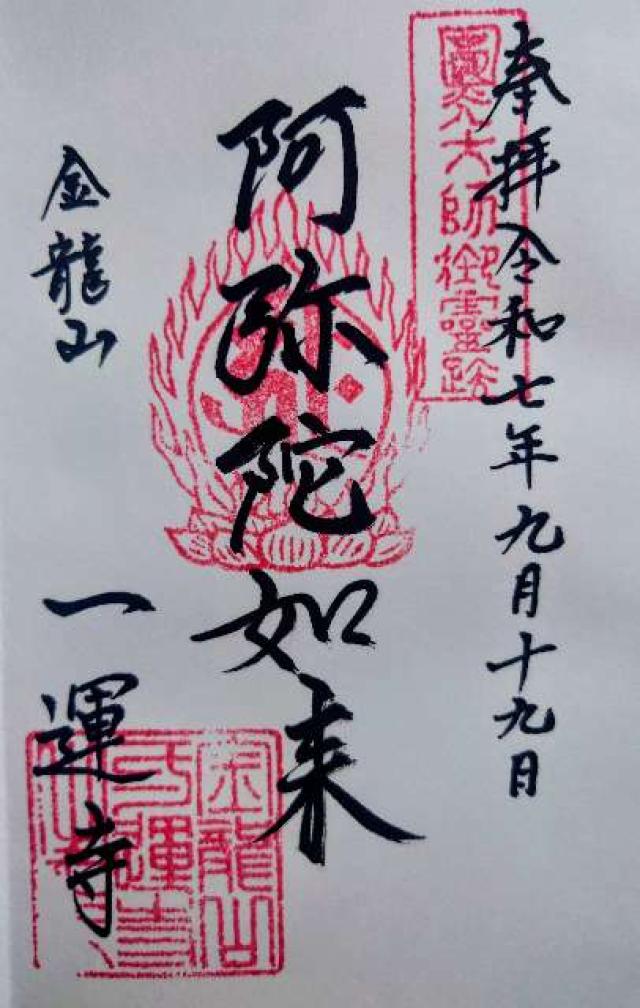 奉拝 令和七年九月十九日
圓光大師御靈跡
阿弥陀如来
金龍山
一運寺
金龍山